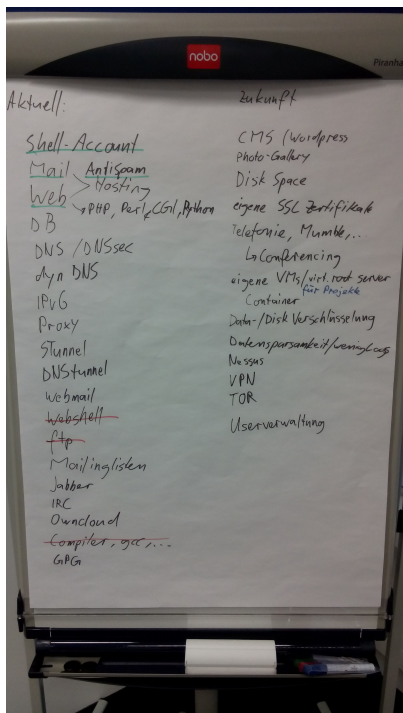 nobo
Piranha
Aktuell:
Shell-Account
Mail Antispam
Web > Hosting
DB → PHP, Perl, CGI, Python
DNS / DNSsec
dyn DNS
IPv6
Proxy
STunnel
DNStunnel
Webmail
Webshell
ftp
Mailinglisten
Jabber
IRC
Owncloud
Compiler, gcc, ...
GPG
Zukunft
CMS / Wordpress
Photo-Gallery
Disk Space
eigene SSL Zertifikate
Telefonie, Mumble, ..
↳ Conferencing
eigene VMs / virt. root server
für Projekte
Container
Data-/Disk Verschlüsselung
Datensparsamkeit/wenig Logs
Nessus
VPN
TOR
Userverwaltung